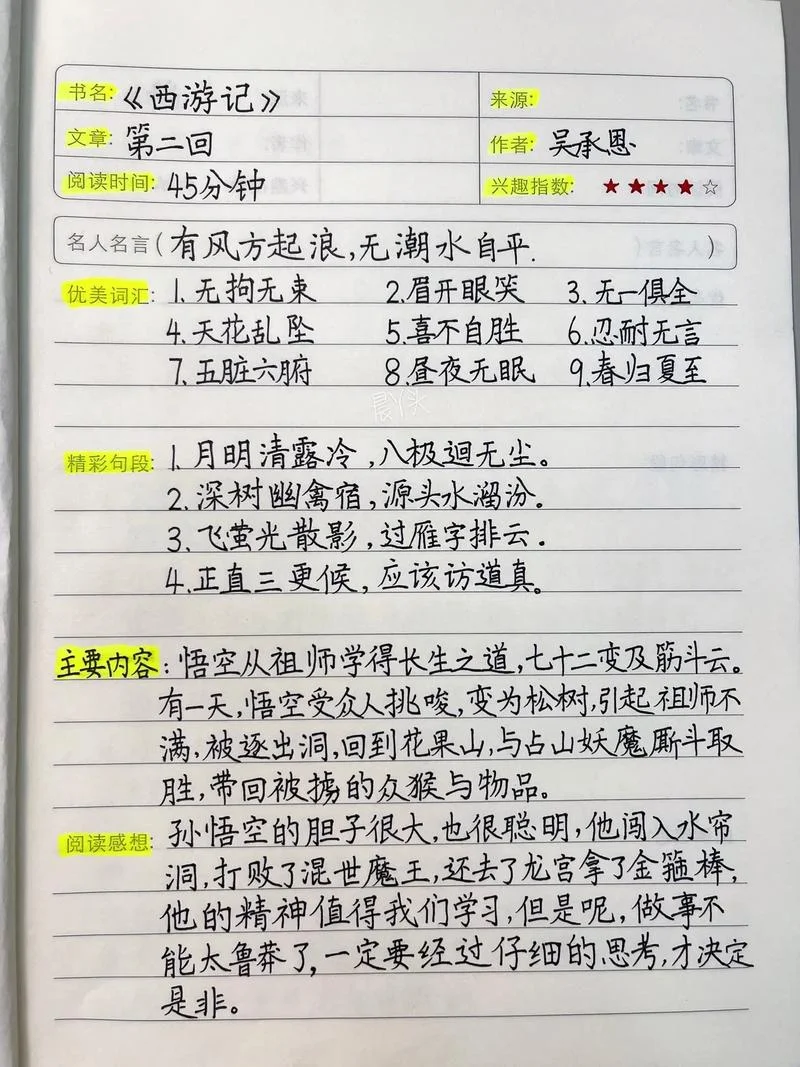 书名:《西游记》 来源:
文章: 第二回 作者: 吴承恩
阅读时间: 45分钟 兴趣指数: ★★★★☆
名人名言(有风方起浪,无潮水自平. )
优美词汇: 1.无拘无束 2.眉开眼笑 3.无一俱全
4.天花乱坠 5.喜不自胜 6.忍耐无言
7.五脏六腑 8.昼夜无眠 9.春归夏至
精彩句段: 1.月明清露冷,八极迥无尘。
2.深树幽禽宿,源头水溜汾。
3.飞萤光散影,过雁字排云.
4.正直三更候,应该访道真。
主要内容:悟空从祖师学得长生之道,七十二变及筋斗云。
有一天,悟空受众人挑唆,变为松树,引起祖师不
满,被逐出洞,回到花果山,与占山妖魔厮斗取
胜,带回被掳的众猴与物品。
阅读感想: 孙悟空的胆子很大,也很聪明,他闯入水帘
洞,打败了混世魔王,还去了龙宫拿了金箍棒,
他的精神值得我们学习,但是呢,做事不
能太鲁莽了,一定要经过仔细的思考,才决定
是非。